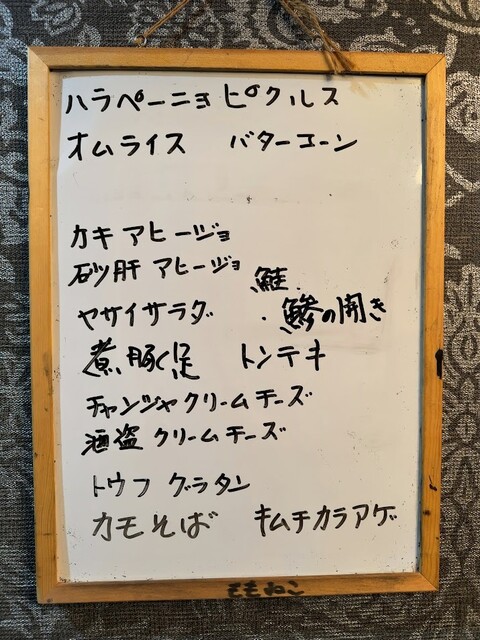 ハラペーニョ ピクルス
オムライス バターコーン
カキ アヒージョ
砂肝 アヒージョ
鮭
ヤサイサラダ
・鯵の開き
煮豚足 トンテキ
チャンジャクリームチーズ
酒盗 クリームチーズ
トウフ グラタン
カモそば キムチカラアゲ
ももねこ